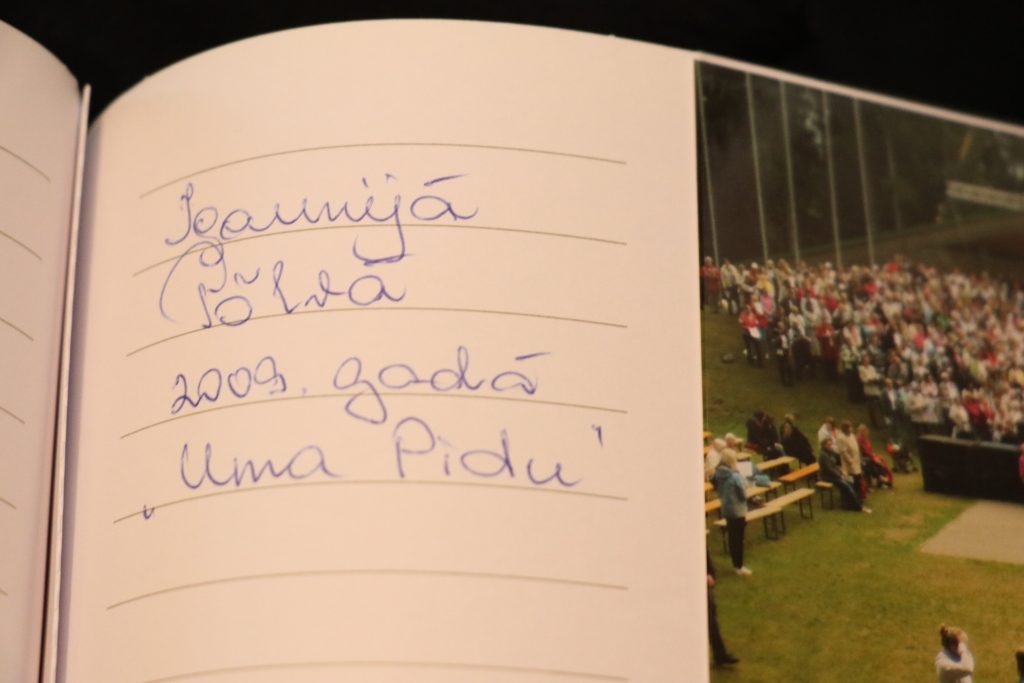 Igaunijā
Põlvā
2009. gadā
„Uma Pidu"